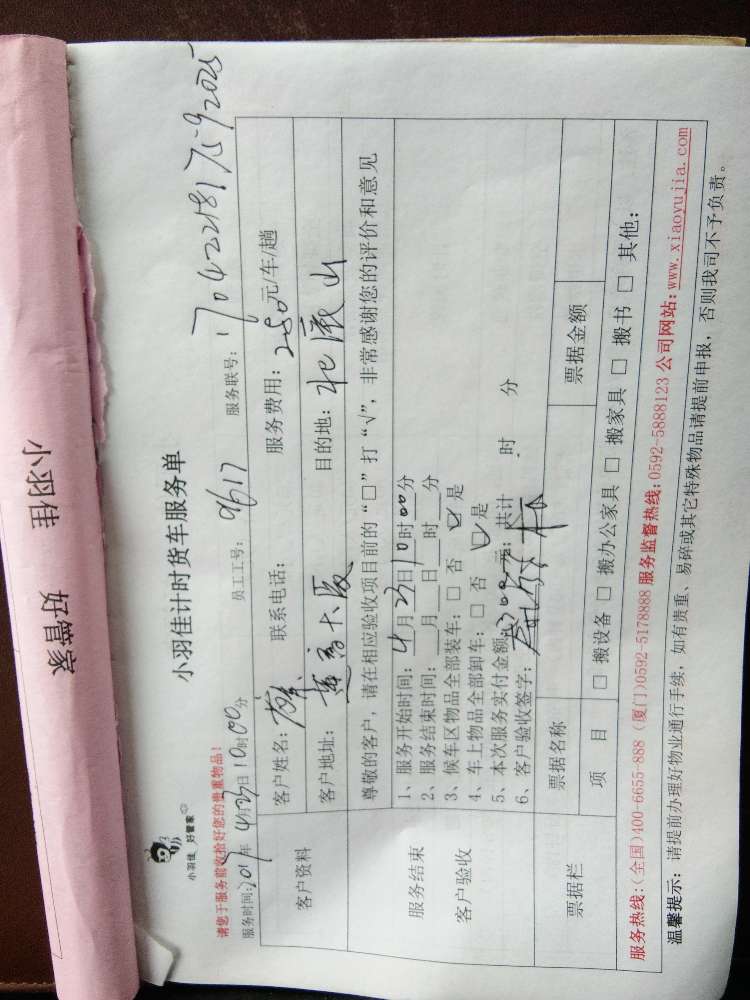 小羽佳 好管家
小羽佳 好管家
小羽佳计时货车服务单
请您于服务前收拾好您的贵重物品!
服务时间:2017年4月23日10时00分 员工工号: 9617 服务联号:
客户资料
客户姓名: 联系电话: 服务费用: 280元/车/趟
客户地址: 目的地:
尊敬的客户,请在相应验收项目前的“□”打“√”,非常感谢您的评价和意见
服务结束
客户验收
1、服务开始时间: 4月23日10时00分
2、服务结束时间: 月 日 时 分
3、候车区物品全部装车:□ 否 ☑ 是
4、车上物品全部卸车:□ 否 ☑ 是
5、本次服务实付金额: 300元; 共计 时 分
6、客户验收签字:
票据栏
票据名称 票据金额
项 目 □ 搬设备 □ 搬办公家具 □ 搬家具 □ 搬书 □ 其他:
服务热线:(全国)400-6655-888 (厦门)0592-5178888 服务监督热线:0592-5888123 公司网站:www.xiaoyujia.com
温馨提示:请提前办理好物业通行手续,如有贵重、易碎或其它特殊物品请提前申报,否则我司不予负责。